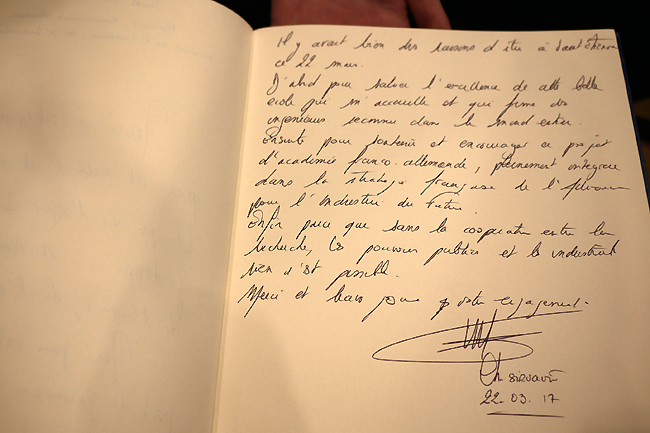 Il y avait bien des raisons d'être à Saint-Etienne
ce 22 mars.
D'abord pour saluer l'excellence de cette belle
école qui m'accueille et qui forme des
ingénieurs reconnus dans le monde entier.
Ensuite pour soutenir et encourager ce projet
d'académie franco-allemande, pleinement intégrée
dans la stratégie française de l'
pour l'industrie du Futur.
Enfin parce que sans la coopération entre les
recherche, les pouvoirs publics et les industriels
rien n'est possible.
Merci et bravo pour votre engagement.
Ch SIRUGUE
22.03.17